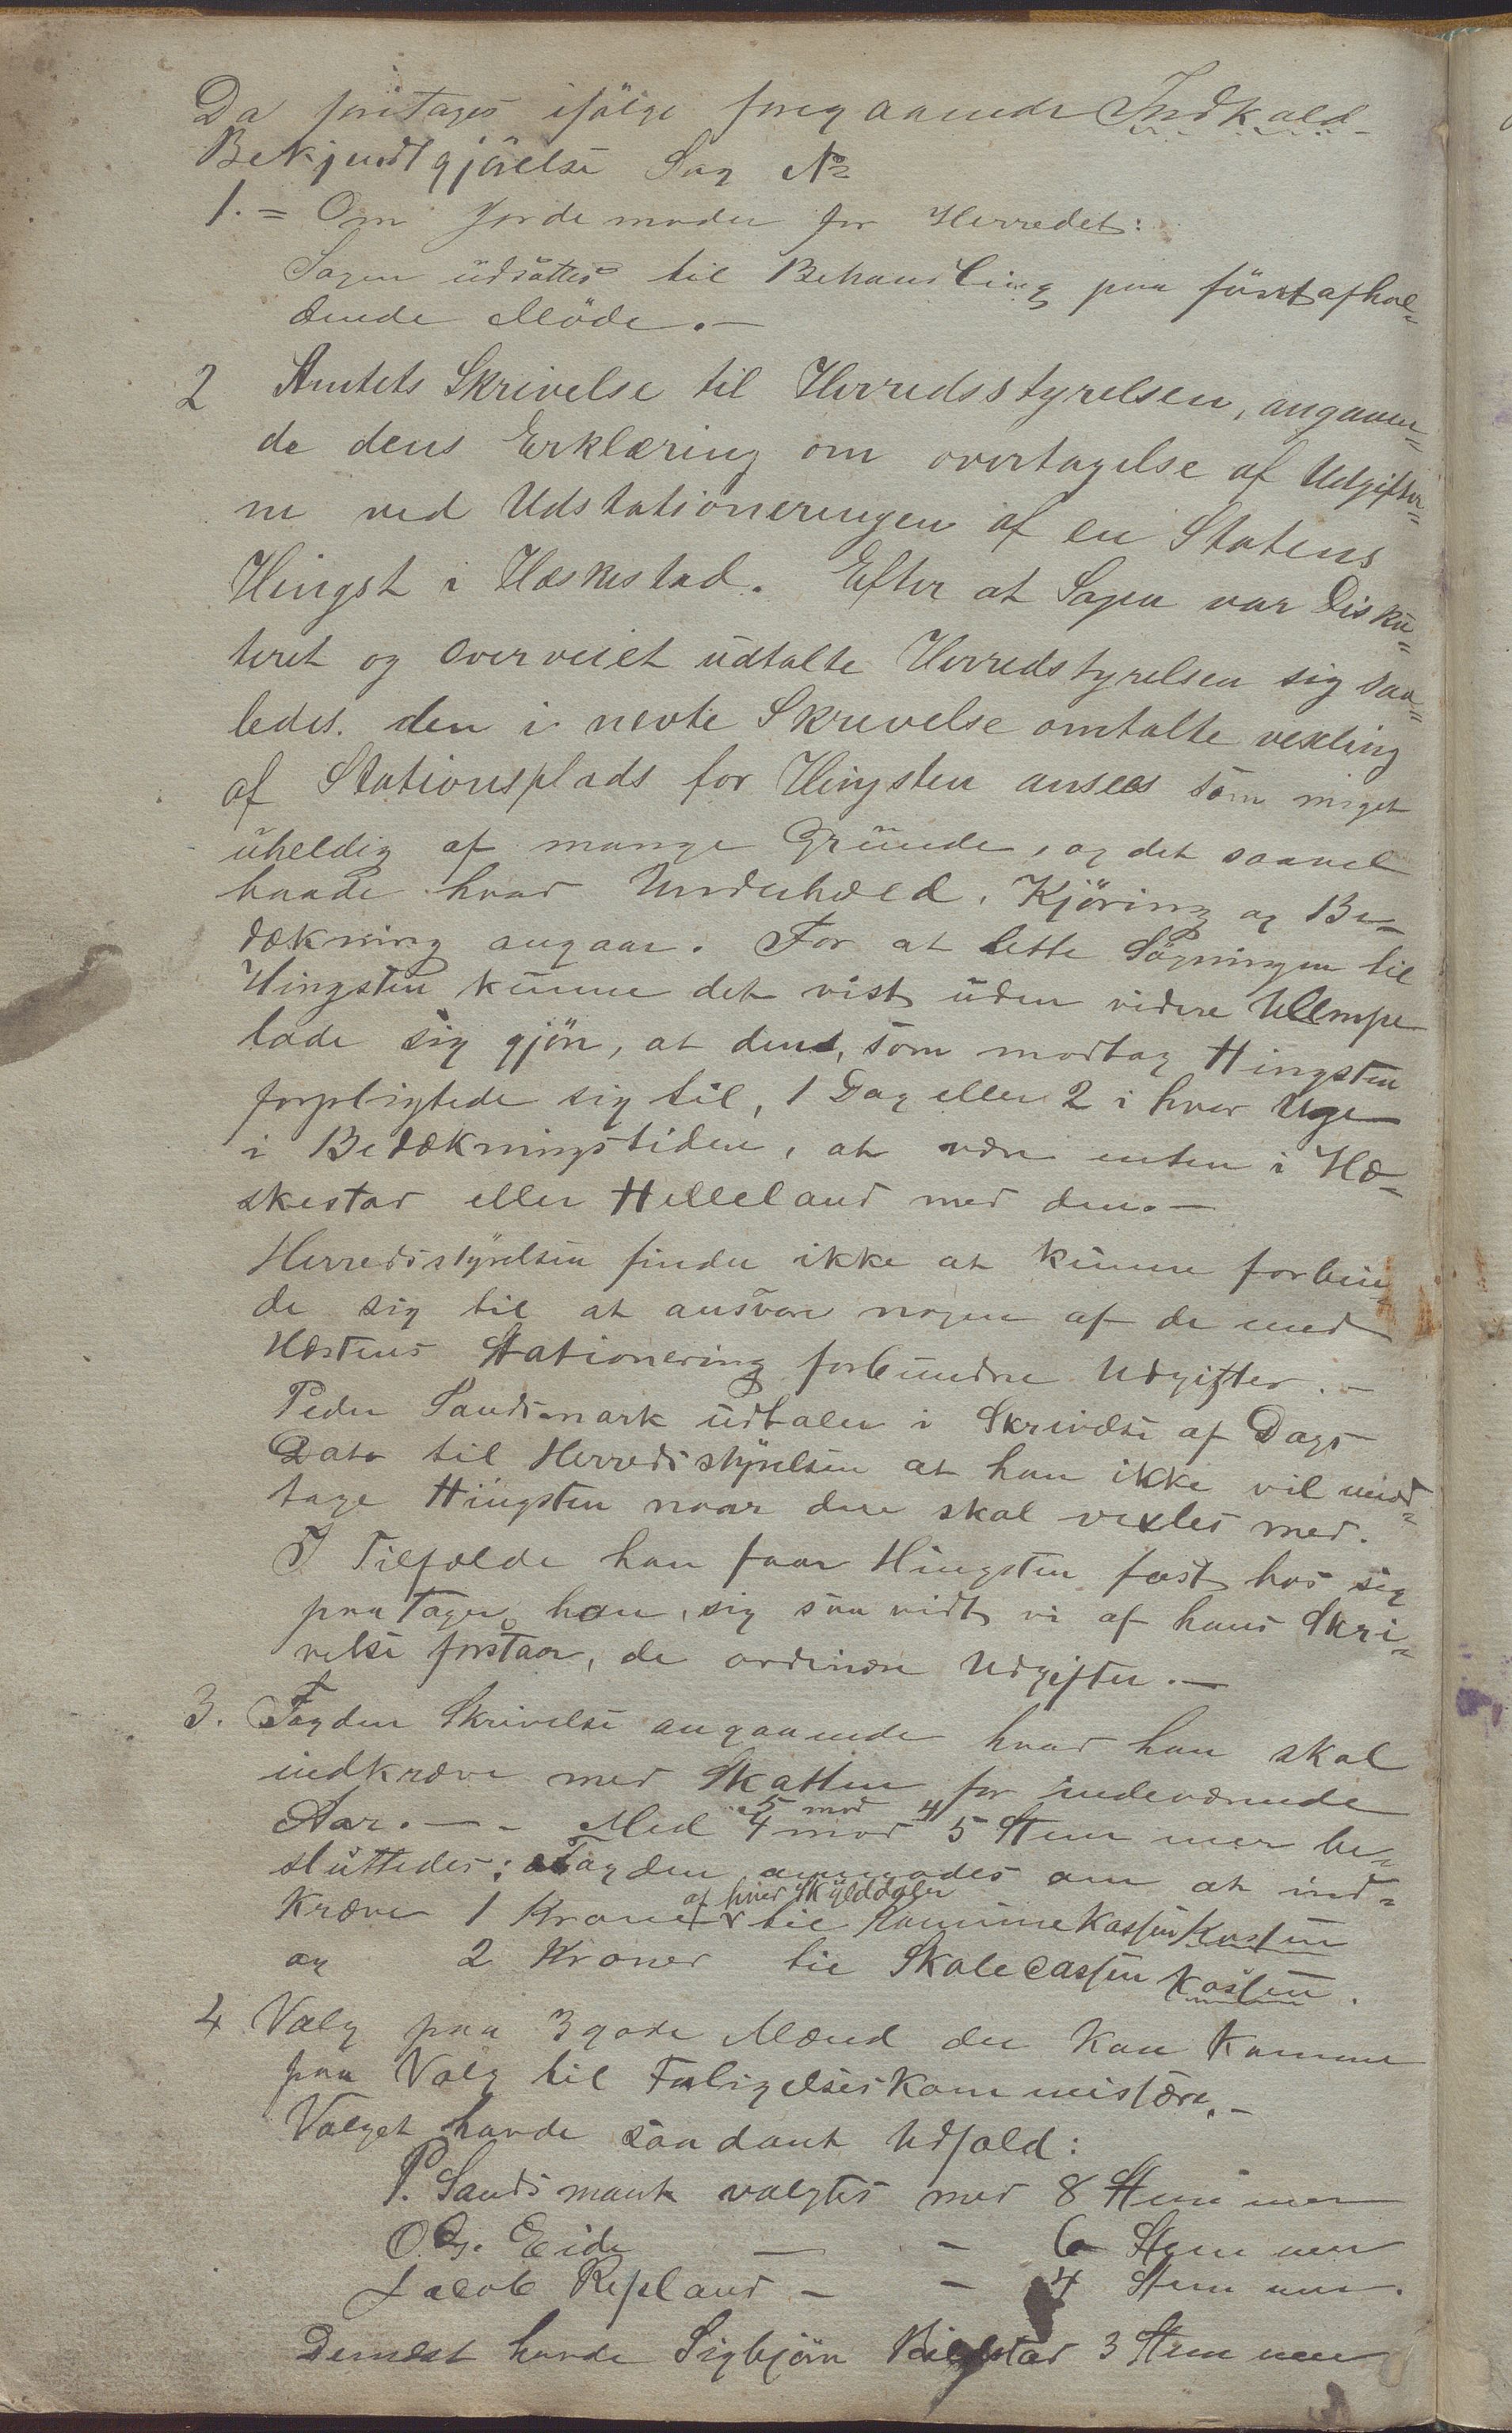 Da foretages ifølge foregaaende Indkald
Bekjendtgjörelse Sag №
1. = Om Jordemoder for Herredet:
Sagen üdsättes til Behandling paa först afhol-
dende Möde. —
2 Amtets Skrivelse til Herredsstyrelsen, angaaen-
de dens Erklæring om overtagelse af Udgifter-
ne ved Udstationeringen af en Statens
Hingst i Hæskestad. Efter at Sagen var Diskü-
teret og overveiet üdtalte Herredstyrelsen sig saa-
ledes. den i nevte Skrivelse omtalte vexling
af Stationsplads for Hingsten ansees som meget
üheldig af mange Gründe, og det saavel
baade hvad Underhold, Kjöring og Be-
dækning angaar. For at lette Sögningen til
Hingsten künne det vist üden videre Ulempe
lade sig gjöre, at den, som modtog Hingsten
forpligtede sig til, 1 Dag eller 2 i hver Uge
i Bedækningstiden, at være enten i Hæ-
skestad eller Helleland med den. —
Herredsstyrelsen finder ikke at künne forbin
de sig til at ansvare nogen af de med
Hestens Stationering forbündne Udgifter. —
Peder Sandsmark üdtaler i Skrivelse af Dags
Dato til Herredsstyrelsen at han ikke vil mod-
tage Hingsten naar den skal vexles med.
I Tilfælde han faar Hingsten fast hos sig
paatager han, sig saa vidt vi af hans Skri-
velse forstaar, de ordinære Udgifter. —
3. Fogdens Skrivelse angaaende hvad han skal
indkræve med Skatten for indeværende
Aar. — - Med 5 mod 4 Stemmer be-
slüttedes: Fogden anmodes om at ind-
kræve 1 Krone af hver Skylddaler til Kommünekassen Kassen
og 2 Kroner til Skolecassen Kassen.
4 Valg paa 3 gode Mænd der kan komme
paa Valg til Forligelseskommissære. —
Valget havde saadant Udfald:
P. Sandsmark valgtes med 8 Stemmer
O. G. Eide — - 6 Stemmer
Jacob Repland - - 4 Stemmer.
Dernæst havde Sigbjörn 3 Stemmer